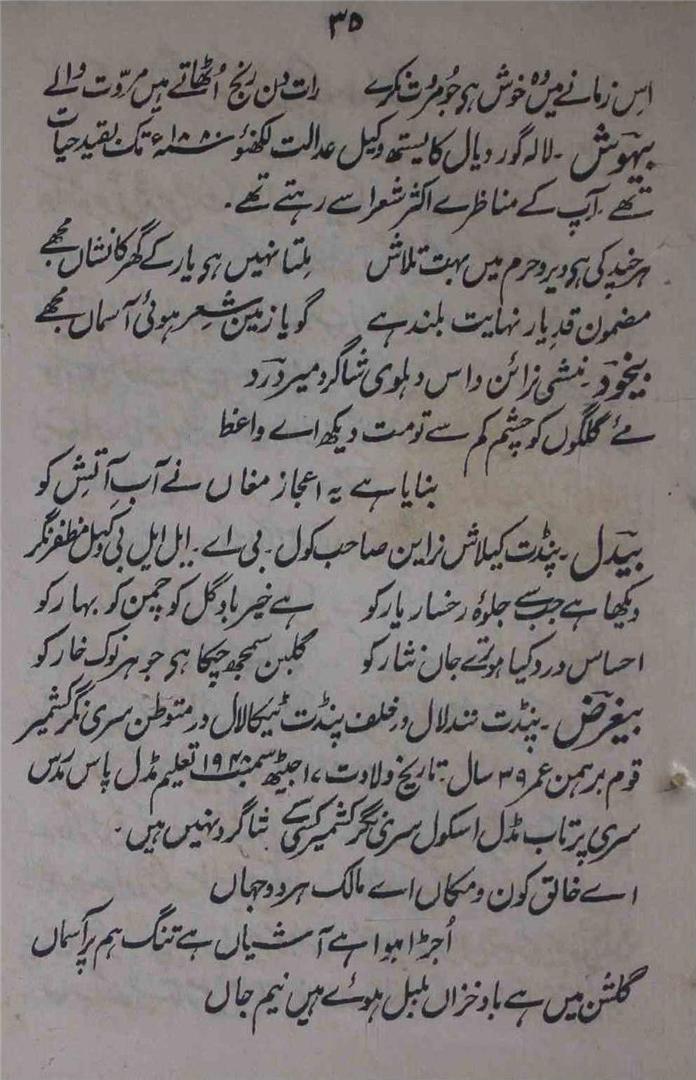 ۳۵
اس زمانے میں وہ خوش ہی جو مروت نکرے رات دن رنج اُٹھاتے ہیں مروّت والے
بیہوش ۔ لالہ گوردیال کایستھ وکیل عدالت لکھنؤ ۱۸۸۰ء تک بقید حیات
تھے ۔ آپ کے مناظرے اکثر شعرا سے رہتے تھے ۔
ہر چند کی ہی دیر و حرم میں بہت تلاش ملتا نہیں ہی یار کے گھر کا نشاں مجھے
مضمون قدِ یار نہایت بلند ہے گویا زمین شعر ہوئی آسماں مجھے
بیخود ۔ منشی نرائن داس دہلوی شاگرد میر درد
مے گلگوں کو چشم کم سے تو مت دیکھ اے واعظ
بنایا ہے یہ اعجاز مغاں نے آب آتش کو
بیدل ۔ پنڈت کیلاش نراین صاحب کول ۔ بی اے ۔ ایل ایل بی وکیل مظفر نگر
دیکھا ہے جب سے جلوۂ رخسار یار کو ہے خیر باد گل کو چمن کو بہار کو
احساس درد کیا ہو ترے جاں نثار کو گلبن سمجھ چکا ہی جو ہر نوک خار کو
بیغرض ۔ پنڈت نندلال در خلف پنڈت ٹیکالال در متوطن سری نگر کشمیر
قوم برہمن عمر ۳۹ سال ۔ تاریخ ولادت ۱۷ جیٹھ سمبت ۱۹۴۸ تعلیم مڈل پاس مدرس
سری پرتاب مڈل اسکول سری نگر کشمیر کسی کے شاگرد نہیں ہیں ۔
اے خالق کون و مکاں اے مالک ہر دو جہاں
اُجڑا ہوا ہے آشیاں ہے تنگ ہم پر آسماں
گلشن میں ہے باد خزاں بلبل ہوئے ہیں نیم جاں